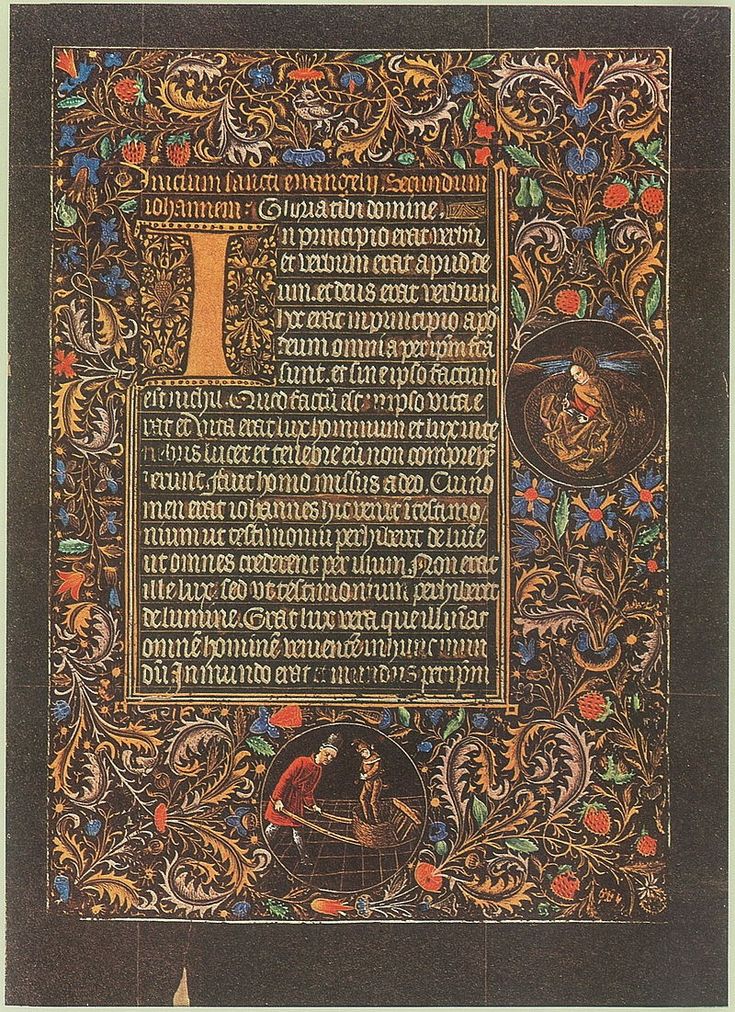 Inicium sancti ewangelij Secundum
iohannem: Gloria tibi domine.
In principio erat verbū
et verbum erat apud de
um. et deus erat verbum
hoc erat in principio apđ
deum omnia per ipm̄ fc̄a
sunt. et sine ipso factum
est nichil. Quod factū est in ipso vita e
rat et vita erat lux hominum et lux in te
nebris lucet et tenebre eū non comprehē
derunt. fuit homo missus a deo. Cui no
men erat iohannes hic venit ī testimo
nium ut testimoniū perhiberet de lumīe
ut omnes crederent per illum. Non erat
ille lux sed ut testimonium perhiberet
de lumine. Erat lux vera que illumīat
omnē hominē venientē in hunc mun
dū. In mundo erat et mundus per ipm̄